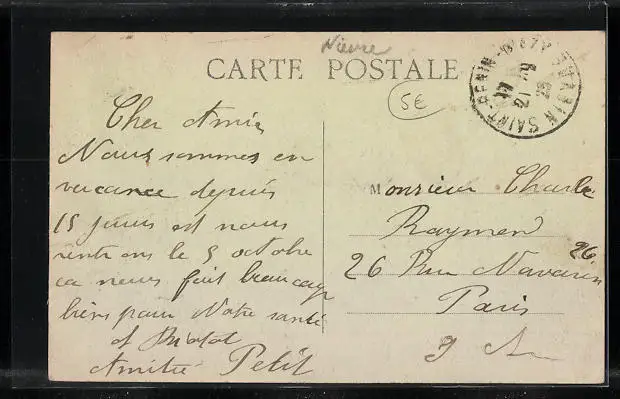 Nievre
CARTE POSTALE
5€
Cher Amie
Nous sommes en
vacance depuis
15 jours et nous
rentrons le 5 octobre
ca nous fait beaucoup
biens pour Notre santé
Amitié Petit
Monsieur Charle
Raymon
26 Rue Navarin 26
Paris